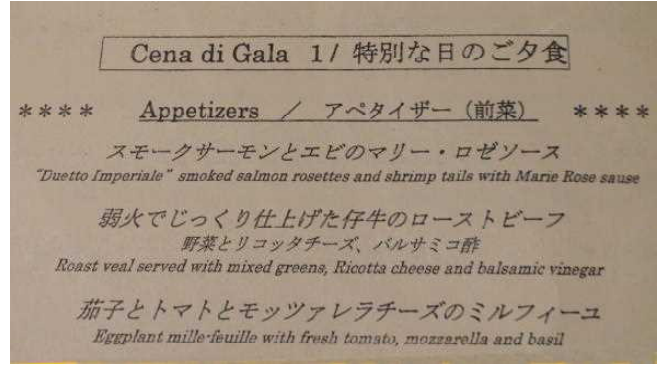 Cena di Gala 1/ 特別な日のご夕食
**** Appetizers / アペタイザー（前菜） ****
スモークサーモンとエビのマリー・ロゼソース
"Duetto Imperiale" smoked salmon rosettes and shrimp tails with Marie Rose sause
弱火でじっくり仕上げた仔牛のローストビーフ
野菜とリコッタチーズ、バルサミコ酢
Roast veal served with mixed greens, Ricotta cheese and balsamic vinegar
茄子とトマトとモッツァレラチーズのミルフィーユ
Eggplant mille-feuille with fresh tomato, mozzarella and basil